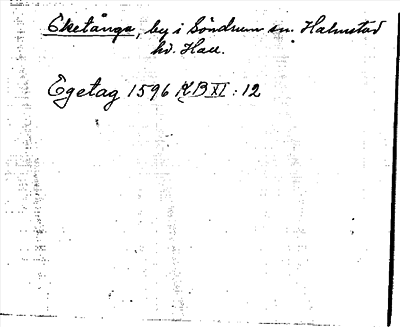 Eketånga, by i Söndrum sn. Halmstad
hd. Hall.
Egetag 1596 KB XI : 12